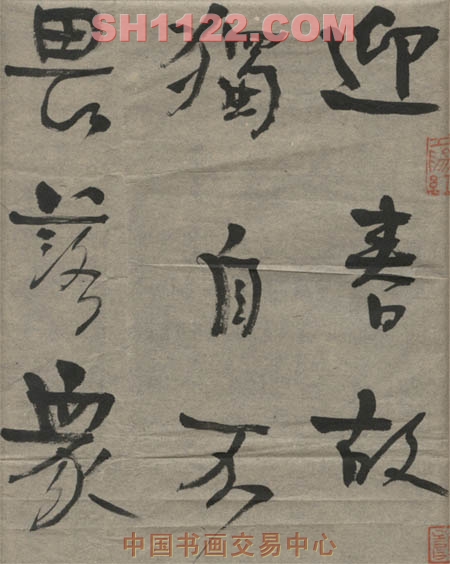 SH1122.COM
迎春故
獨自不
畏落眾
中国书画交易中心